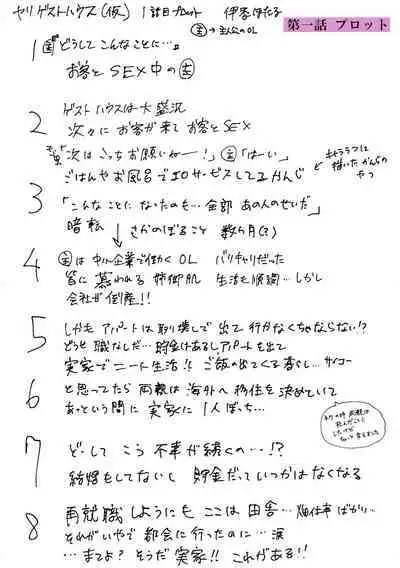 ヤリゲストハウス(仮) 1話目プロット 伊香ほたる
第一話 プロット
主→主人公のOL
1 主『どうしてこんなことに…』
お客とSEX中の主
2 ゲストハウスは大盛況
次々にお客が来てお客とSEX
客「次はこっちお願いねー!」主「はーい」
ごはんやお風呂でエロサービスしてるかんじ
と
描いたかんじの
やつ
3 「こんなことになったのも…全部あの人のせいだ」
暗転 さかのぼること 数ヶ月(?)
4 主は中小企業で働くOL バリキャリだった
皆に慕われる姉御肌 生活も順調…しかし
会社が倒産!!
5 しかもアパートは取り壊しで出て行かなくちゃならない!?
どうせ職なしだ…貯金はあるしアパートを出て
実家でニート生活!! ご飯の出てくる暮らし…サイコー
6 と思ってたら両親は海外へ移住を決めていて
あっという間に実家に1人ぼっち…
7 どーしてこう不幸が続くの…!?
結婚もしてないし貯金だっていつかはなくなる
8 再就職しようにもここは田舎…畑仕事ばかり…
それがいやで都会に行ったのに…涙
…まてよ?そうだ実家!!これがある!!